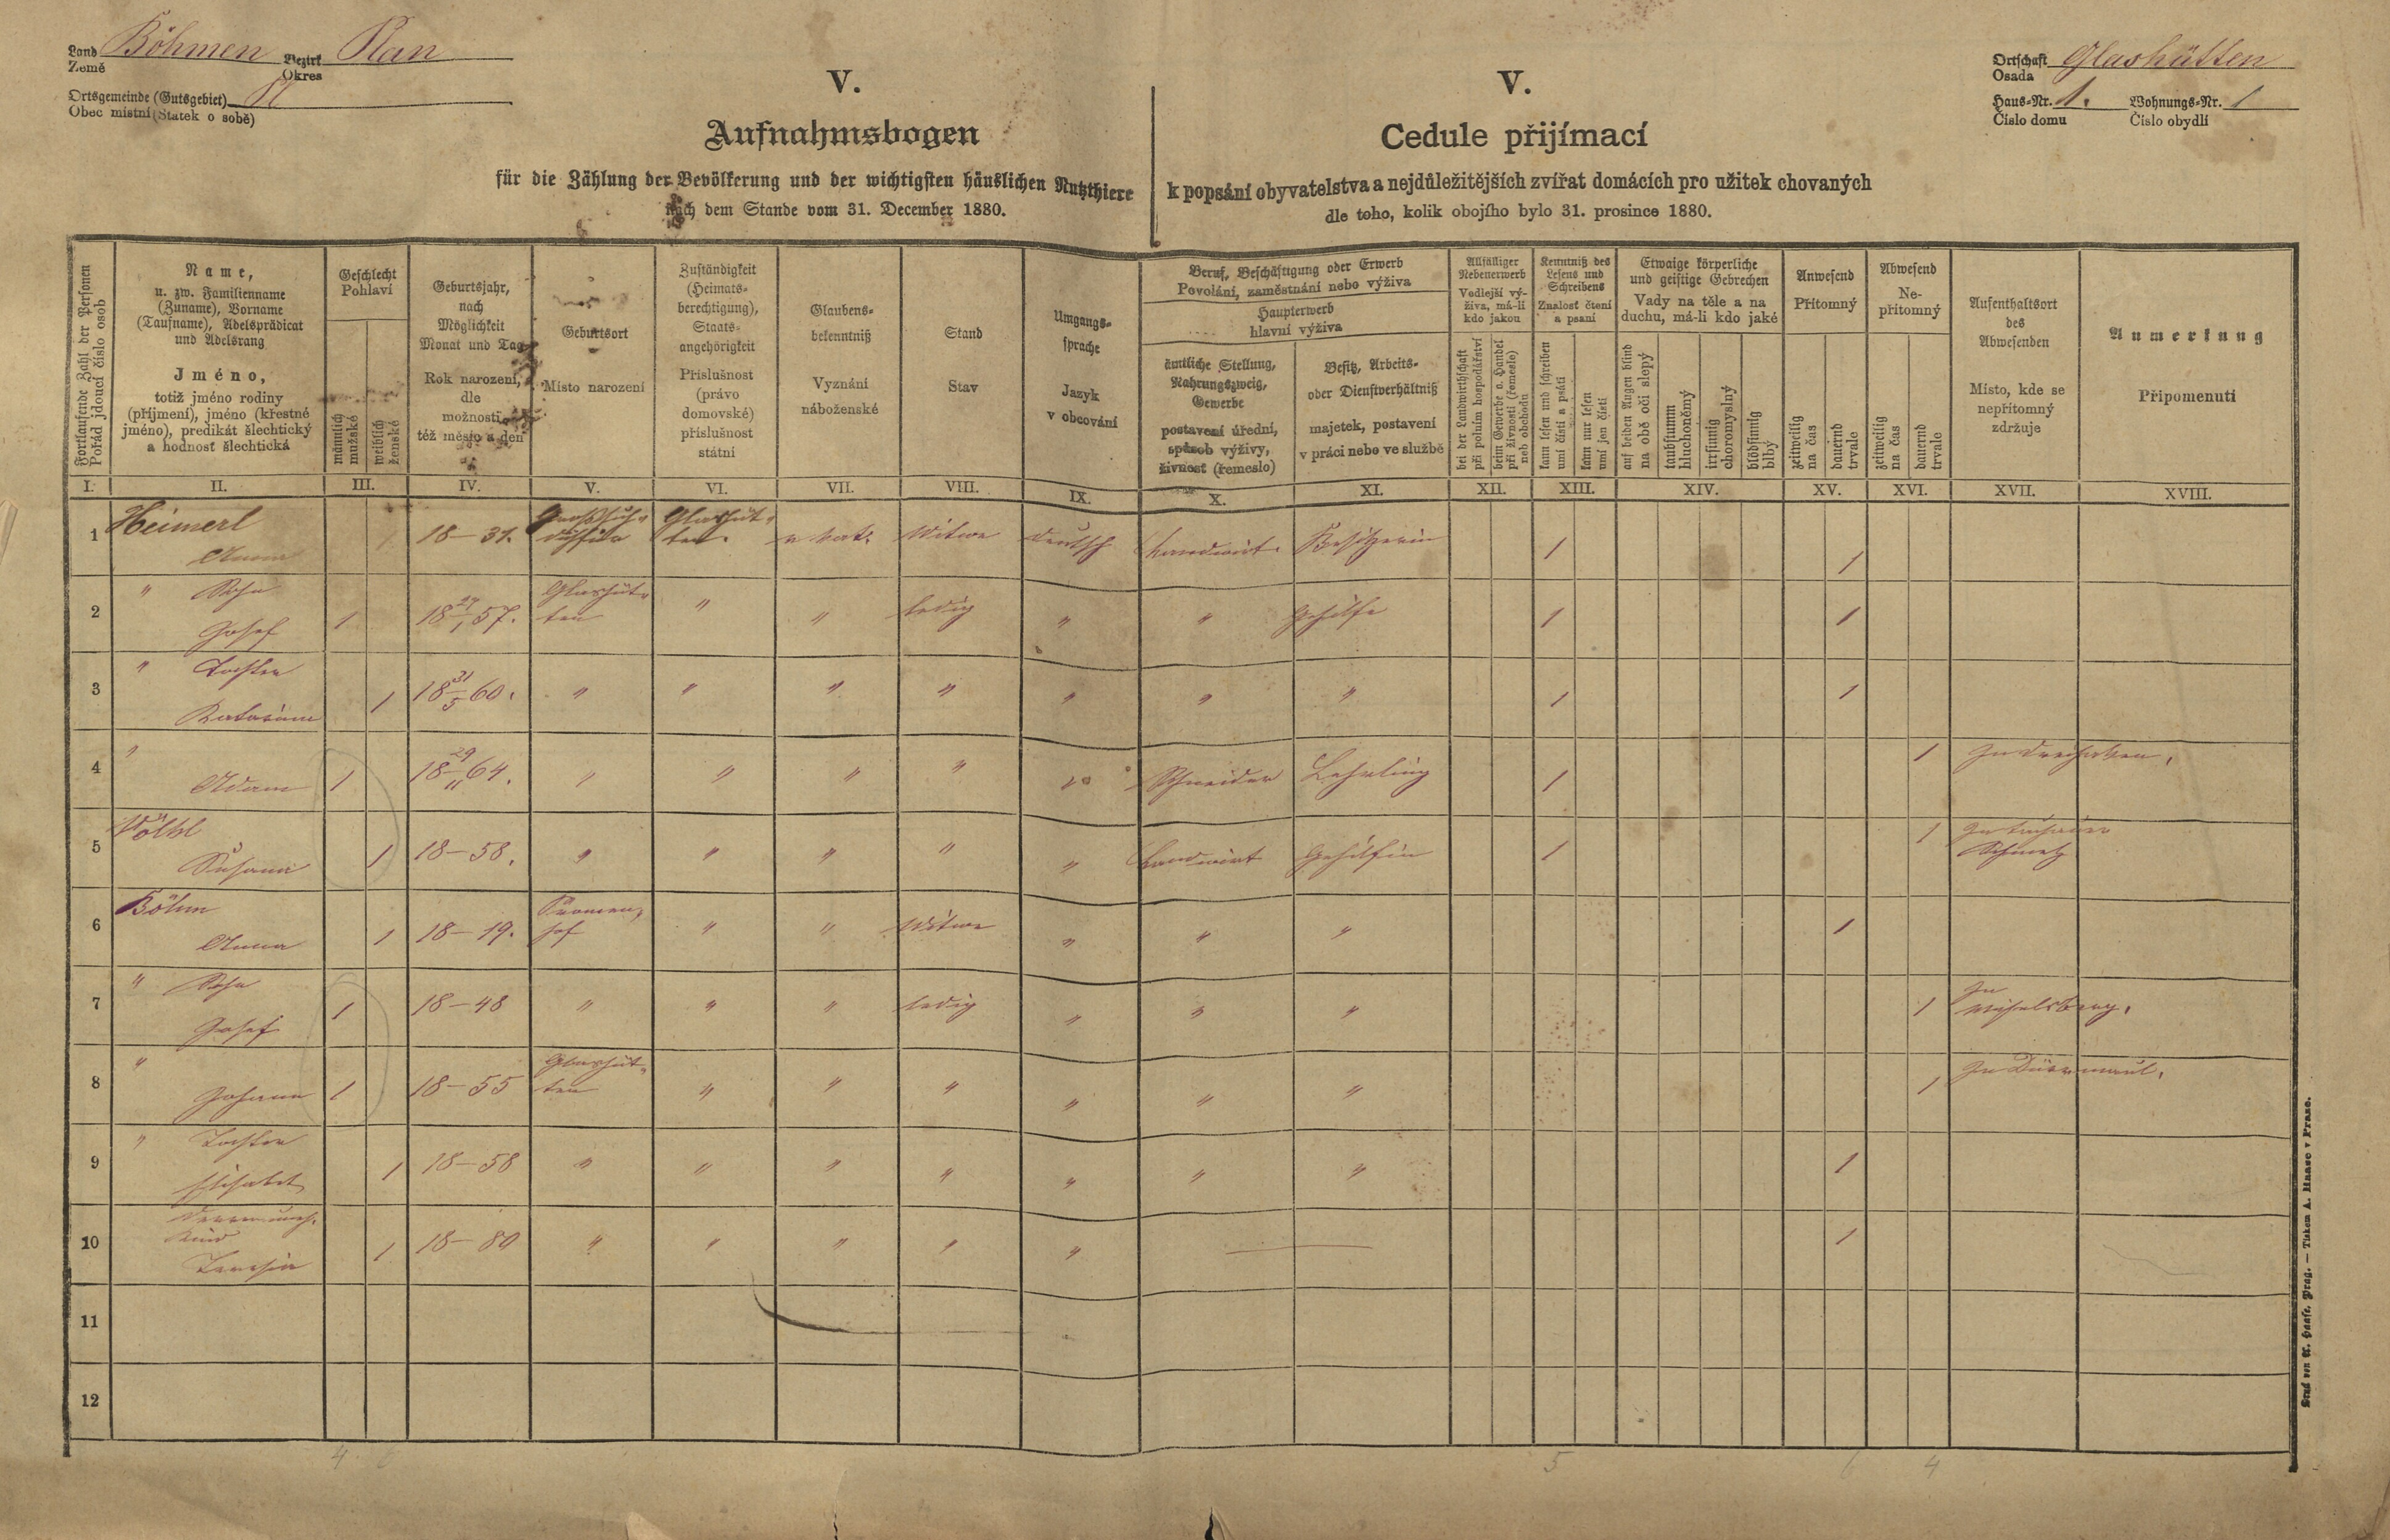 Land Böhmen Bezirk Plan
Země Okres
Ortsgemeinde (Gutsgebiet)
Obec místní (Statek o sobě)
V.
Aufnahmsbogen
für die Zählung der Bevölkerung und der wichtigsten häuslichen Nutzthiere
nach dem Stande vom 31. December 1880.
V.
Cedule přijímací
k popsání obyvatelstva a nejdůležitějších zvířat domácích pro užitek chovaných
dle toho, kolik obojího bylo 31. prosince 1880.
Ortschaft Glashütten
Osada
Haus-Nr. 1. Wohnungs-Nr. 1
Číslo domu Číslo obydlí
Fortlaufende Zahl der Personen
Pořád jdoucí číslo osob
Name,
u. zw. Familienname
(Zuname), Vorname
(Taufname), Adelsprädicat
und Adelsrang
Jméno,
totiž jméno rodiny
(příjmení), jméno (křestné
jméno), predikát šlechtický
a hodnosť šlechtická
Geschlecht
Pohlaví
männlich
mužské
weiblich
ženské
Geburtsjahr,
nach
Möglichkeit
Monat und Tag
Rok narození,
dle
možnosti
též měsíc a den
Geburtsort
Místo narození
Zuständigkeit
(Heimats-
berechtigung),
Staats-
angehörigkeit
Příslušnost
(právo
domovské)
příslušnost
státní
Glaubens-
bekenntniß
Vyznání
náboženské
Stand
Stav
Umgangs-
sprache
Jazyk
v obcování
Beruf, Beschäftigung oder Erwerb
Povolání, zaměstnání nebo výživa
Haupterwerb
hlavní výživa
ämtliche Stellung,
Nahrungszweig,
Gewerbe
postavení úřední,
spůsob výživy,
živnosť (řemeslo)
Besitz, Arbeits-
oder Dienstverhältniß
majetek, postavení
v práci nebo ve službě
Allfälliger
Nebenerwerb
Vedlejší vý-
živa, má-li
kdo jakou
bei der Landwirthschaft
při polním hospodářství
beim Gewerbe o. Handel
při živnosti (řemesle)
neb obchodu
Kenntniß des
Lesens und
Schreibens
Znalosť čtení
a psaní
kann lesen und schreiben
umí čísti a psáti
kann nur lesen
umí jen čísti
Etwaige körperliche
und geistige Gebrechen
Vady na těle a na
duchu, má-li kdo jaké
auf beiden Augen blind
na obě oči slepý
taubstumm
hluchoněmý
irrsinnig
choromyslný
blödsinnig
blbý
Anwesend
Přítomný
zeitweilig
na čas
dauernd
trvale
Abwesend
Ne-
přítomný
zeitweilig
na čas
dauernd
trvale
Aufenthaltsort
des
Abwesenden
Místo, kde se
nepřítomný
zdržuje
Anmerkung
Připomenutí
I. II. III. IV. V. VI. VII. VIII. IX. X. XI. XII. XIII. XIV. XV. XVI. XVII. XVIII.
1 Heimerl Anna 1 18–31. Glashüt-ten. r. kat. Witwe deutsch Landwirt. Besitzerin 1 1
2 " Sohn Josef 1 18 27/1 57. Glashüt-ten " " ledig " " Gehilfe 1 1
3 " Tochter Katarina 1 18 31/5 60. " " " " " " " 1 1
4 " Adam 1 18 29/11 64. " " " " " Schneider Lehrling 1 1 In Dreihaken,
5 Wölkl Susana 1 18–58. " " " " " Landwirt Gehilfin 1 1 In
6 Böhm Anna 1 18–19. Promen-hof " " Witwe " " " 1
7 " Sohn Josef 1 18–48 " " " ledig " " " 1 In
8 " Johann 1 18–55 Glashüt-ten " " " " " " 1 In Dürrmaul,
9 " Tochter Elisabet 1 18–58 " " " " " " " 1
10 Kind Teresia 1 18–80 " " " " " — 1
11
12
4 6 5 6 4
Druck von A. Haase, Prag. — Tiskem A. Haase v Praze.